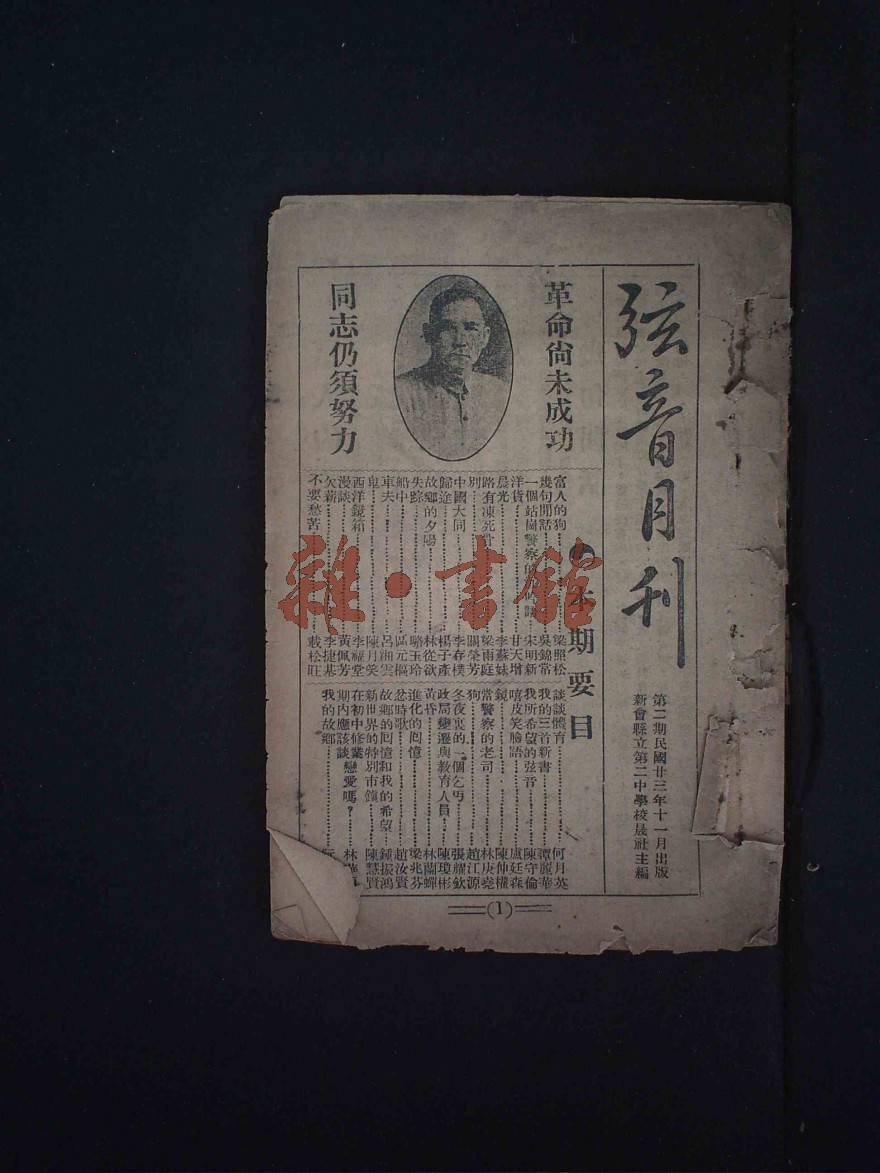 弦音月刊
第二期民國廿三年十一月出版
新會縣立第二中學校晟社主編
革命尙未成功
同志仍須努力
本期要目
富人的狗 梁照松
幾句閒話 吳錦常
一個站崗警察的 宋明新
洋貨 甘天增
晨光 李蘇妹
路有凍死骨 梁雨庭
別 關榮芳
中國大同 李春樸
歸途 楊子產
故鄉的夕陽 林從欲
失踪 駱玉玲
船中 區元樞
車夫 呂湘雲
鬼 陳月笑
西洋鏡箱 李耀堂
漫談 黃佩芳
欠薪 李捷基
不要愁苦 戴松旺
談談體育 何月英
我的三首新書 譚麗華
我所希望的弦音 陳守倫
嘻皮笑臉語 盧廷森
鏡 陳仲權
當警察的老司 林庚堯
狗 趙江源
冬夜裏的一個乞丐 張耀欽
政局變遷與教育人員 陳瓊彬
黃昏 林蘭蟬
進化的囘憶 梁兆芬
忿時歌 趙汝賢
故鄉的囘憶和我的希望 鍾振鴻
新世界的特別市鎮 陳慧賢
在初中修業期內應該談戀愛嗎？ 林
我的故鄉
(1)
雜·書館